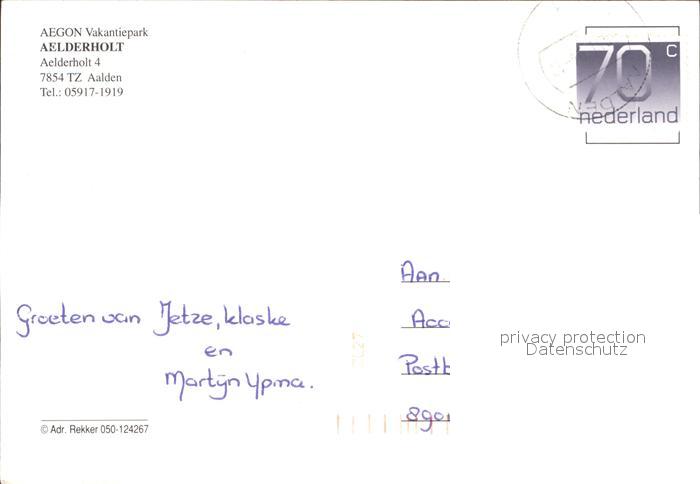 AEGON Vakantiepark
AELDERHOLT
Aelderholt 4
7854 TZ Aalden
Tel.: 05917-1919
70 c
nederland
Aan
Acc
Postb
890
privacy protection
Datenschutz
Groeten van Jetze, klaske
en
Martijn Ypma.
© Adr. Rekker 050-124267